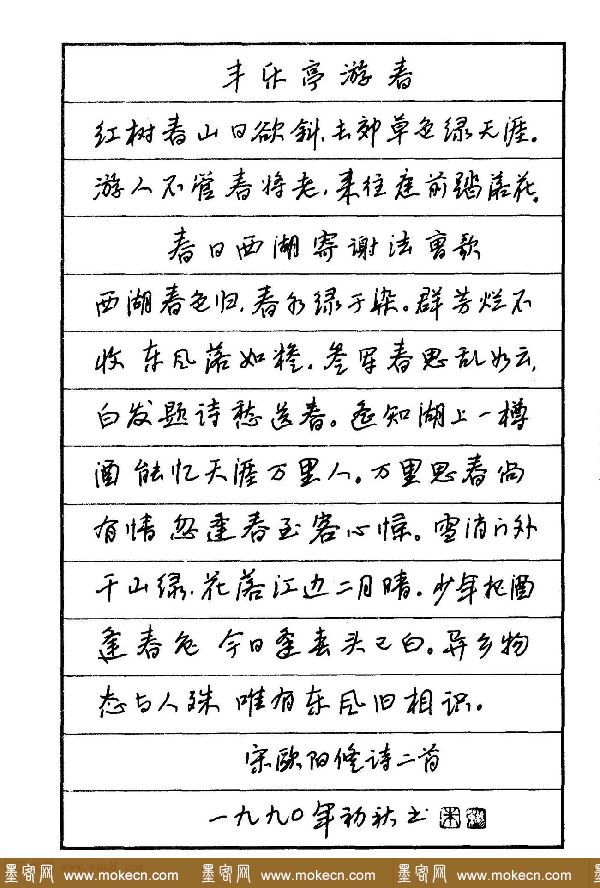 丰乐亭游春
红树青山日欲斜,长郊草色绿无涯。
游人不管春将老,来往庭前踏落花。
春日西湖寄谢法曹歌
西湖春色归,春水绿于染。群芳烂不
收 东风落如糁。参军春思乱如云,
白发题诗愁送春。遥知湖上一樽
酒 能忆天涯万里人。万里思春尚
有情 忽逢春至客心惊。雪消门外
千山绿,花落江边二月晴。少年把酒
逢春色 今日逢春头已白。异乡物
态与人殊 唯有东风旧相识。
宋欧阳修诗二首
一九九〇年初秋书
墨客网 www.mokecn.com 墨客网 www.mokecn.com 墨客网 www.mokecn.com